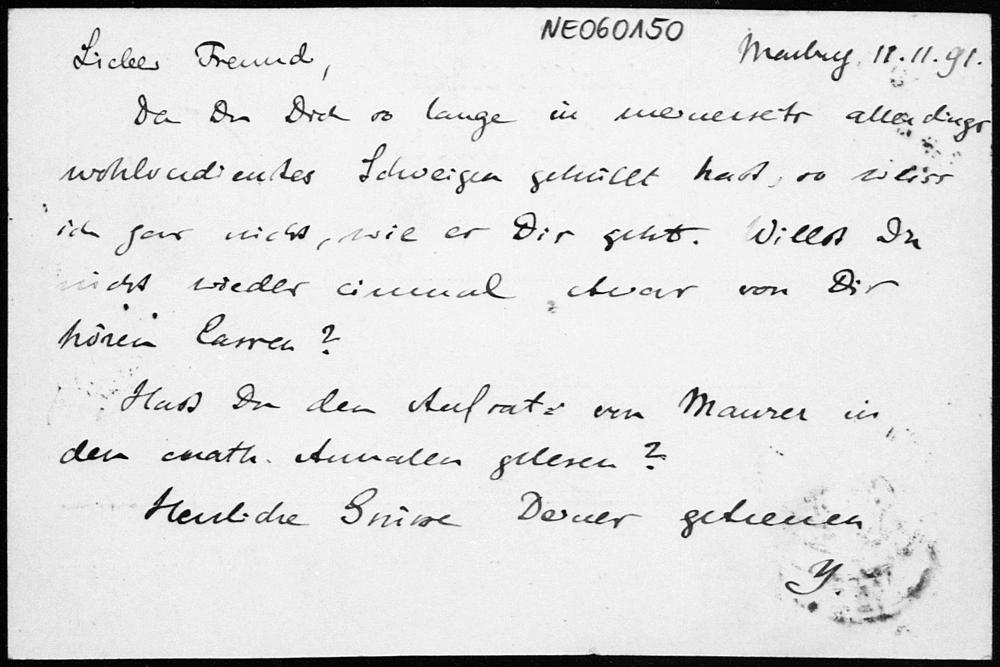 NE060150
Marburg 11.11.91.
Lieber Freund,
Da Du Dich so lange in meinerseits allerdings
wohlverdientes Schweigen gehüllt hast, so weiss
ich gar nicht, wie es Dir geht. Willst Du
nicht wieder einmal etwas von Dir
hören lassen?
Hast Du den Aufsatz von Maurer in
den math. Annalen gelesen?
Herzliche Grüsse Deines getreuen